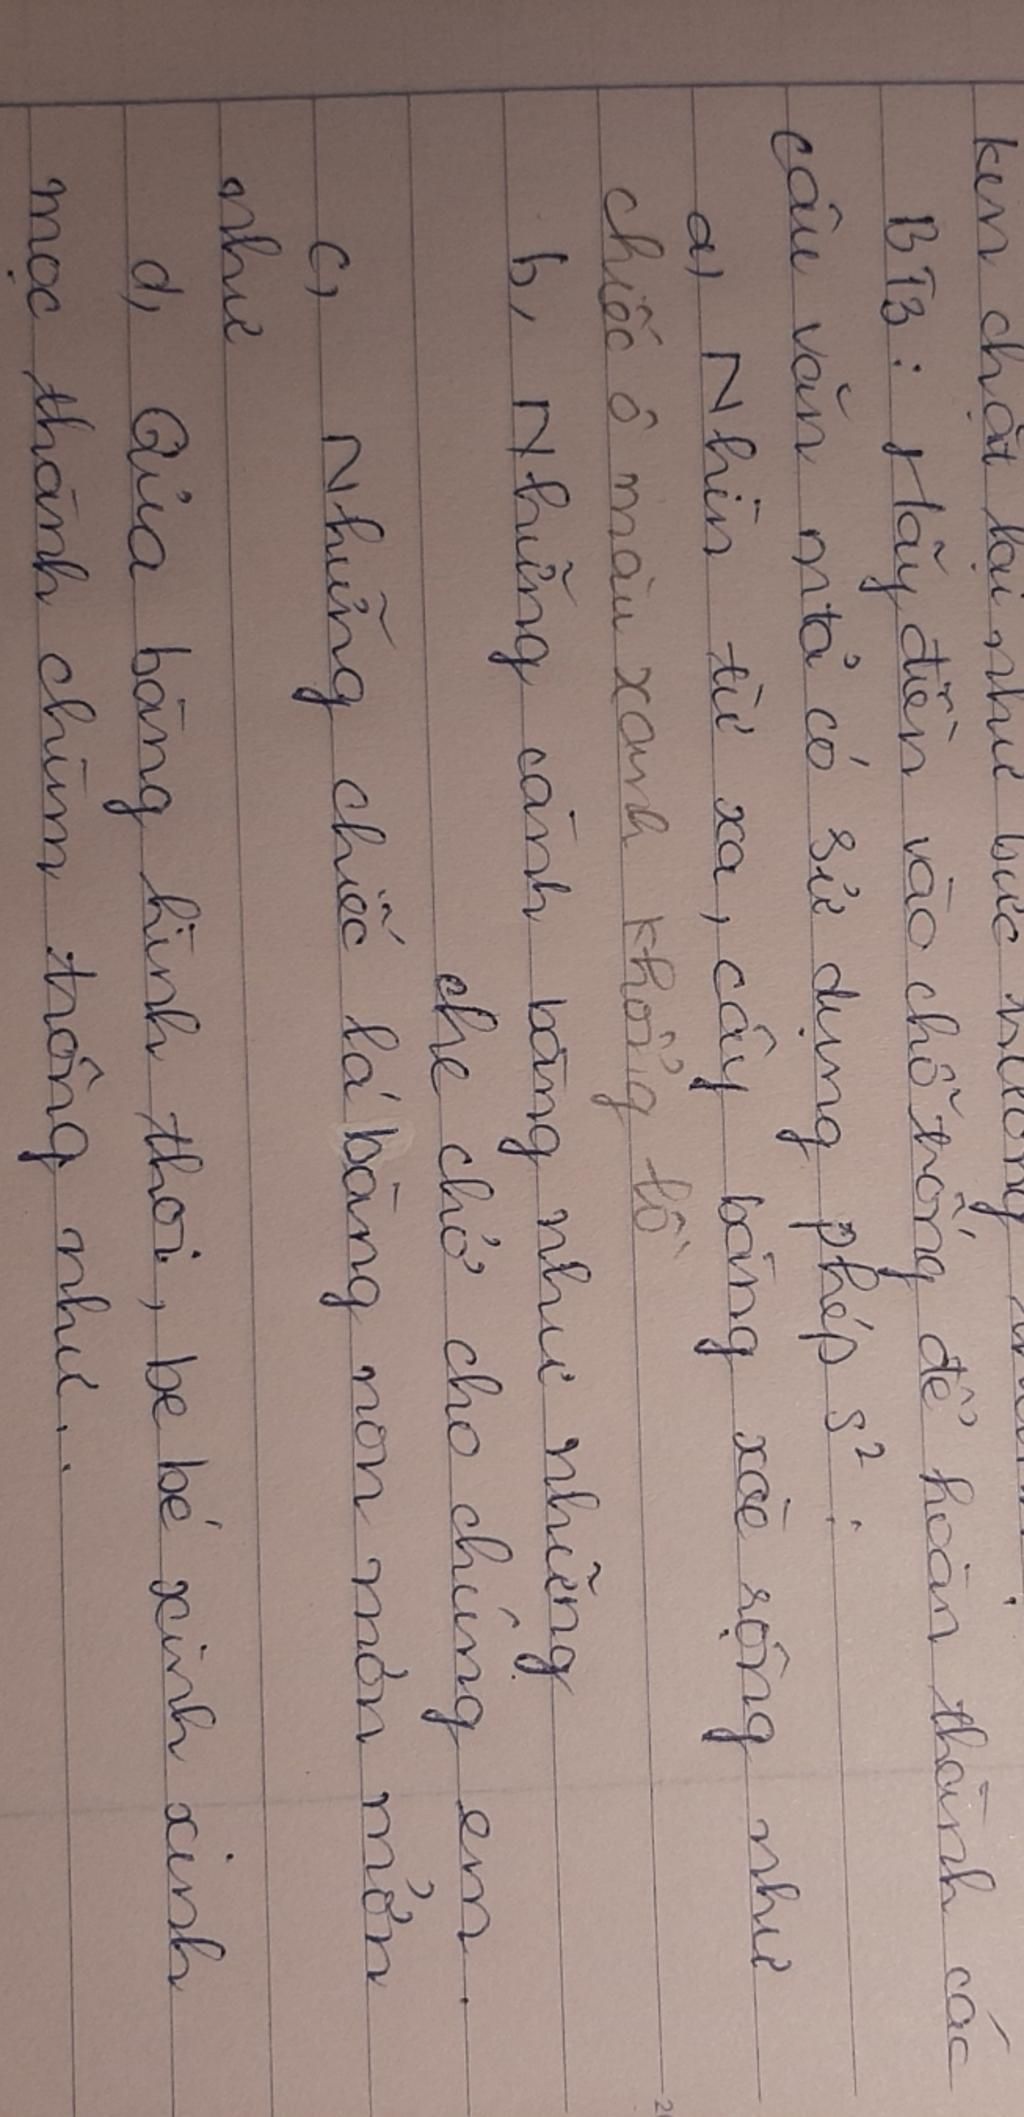 ken chặt lại như bức
BT3: Hãy điền vào chỗ trống để hoàn thành các
câu văn mtả có sử dụng phép s²:
a, Nhìn từ xa, cây bàng xòe rộng như
chiếc ô màu xanh khổng lồ
b, Những cành bàng như những
che chở cho chúng em.
c, Những chiếc lá bàng non mơn mởn
như
d, Qủa bàng hình thoi, be bé xinh xinh
mọc thành chùm trông như..
20